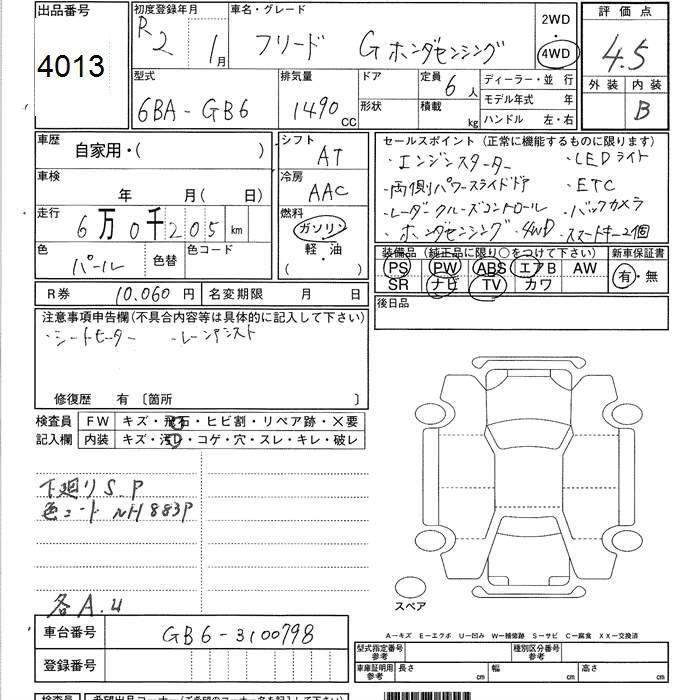 出品番号
4013
初度登録年月
R2 1月
車名・グレード
フリード Gホンダセンシング
2WD
・
4WD
評価点
4.5
外装 内装
B
型式
6BA-GB6
排気量
1490 cc
ドア
形状
定員 6 人
積載 kg
ディーラー・並 行
モデル年式 年
ハンドル 左・右
車歴
自家用・( )
車検
年 月( 日)
走行
6万0千205 km
色
パール
色替
色コード
シフト
AT
冷房
AAC
燃料
ガソリン
・
軽・油
( )
セールスポイント (正常に機能するものに限ります)
・エンジンスターター ・LEDライト
・両側パワースライドドア ・ETC
・レーダークルーズコントロール ・バックカメラ
・ホンダセンシング・4WD ・スマートキー2個
装備品 (純正品に限り○をつけて下さい)
PS PW ABS エアB AW
SR ナビ TV カワ
新車保証書
有・無
後日品
R券 10.060 円
名変期限 月 日
注意事項申告欄(不具合内容等は具体的に記入して下さい)
・シートヒーター ・レーンアシスト
修復歴 有 〔箇所 〕
検査員
記入欄
FW キズ・飛石・ヒビ割・リペア跡・X要
内装 キズ・汚レ・コゲ・穴・スレ・キレ・破レ
下廻りS.P
色コード NH883P
各A.U
スペア
車台番号
GB6-3100798
登録番号
A―キズ E―エクボ U―凹み W―補修跡 S―サビ C―腐食 XX―交換済
型式指定番号
参考
種別区分番号
参考
車庫証明用
参考
長さ cm
幅 cm
高さ cm
検査員
希望出品コーナー(ご希望のコーナー名を記入下さい)